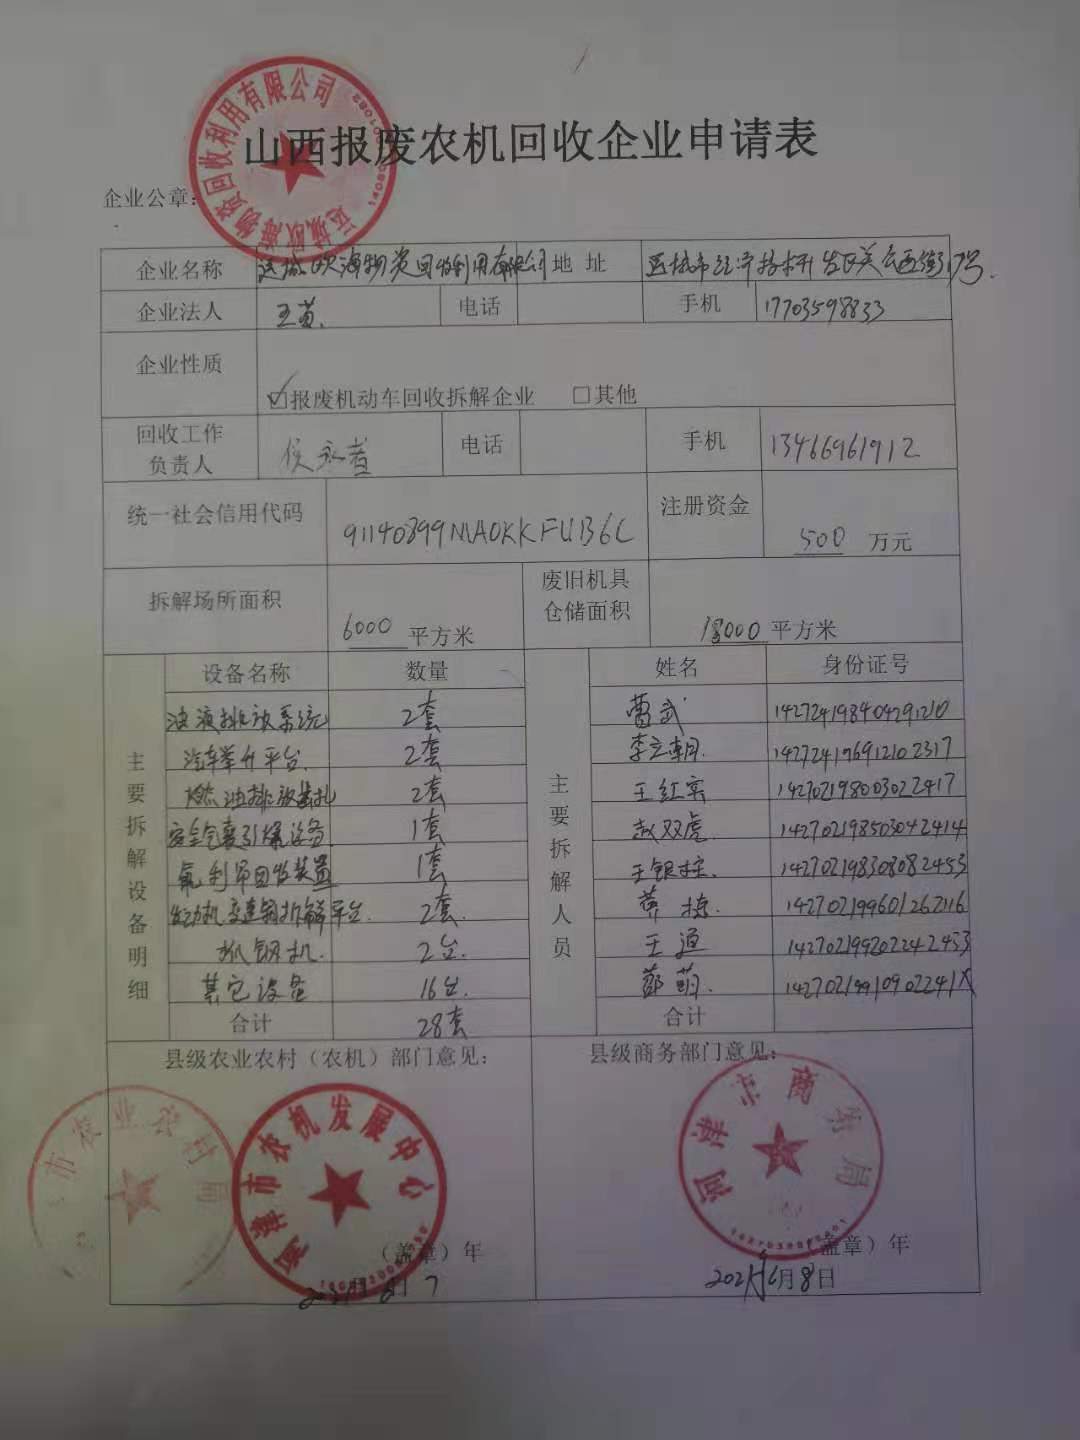 山西报废农机回收企业申请表
企业公章:
运城欧海物资回收利用有限公司
企业名称 运城欧海物资回收利用有限公司 地 址 运城市经济技术开发区关公西街17号.
企业法人 王苗. 电话 手机 17703598833
企业性质
☑报废机动车回收拆解企业 □其他
回收工作
负责人 侯永者 电话 手机 13466961912
统一社会信用代码 91140899MA0KKFUB6C 注册资金 500 万元
拆解场所面积 6000 平方米 废旧机具
仓储面积 18000 平方米
主要拆解设备明细 设备名称 数量 主要拆解人员 姓名 身份证号
油液排放系统 2套 曹武 142724198404291210
汽车举升平台. 2套 李立朝. 142724196912102317
燃油排放 2套 王红实 142702198003022417
安全气囊引爆设备 1套 赵双虎. 142702198503042414
氟利昂回收装置 1套 王银柱. 142702198308082453
发动机变速箱拆解平台. 2套. 142702199601262116
抓钢机. 2台. 王通 142702199202242433
其它设备 16台. 萌. 14270219910902241X
合计 28套 合计
县级农业农村（农机）部门意见: 县级商务部门意见:
市农业农村局
河津市农机发展中心
河津市商务局
（盖章）年 （盖章）年
2021年6月8日